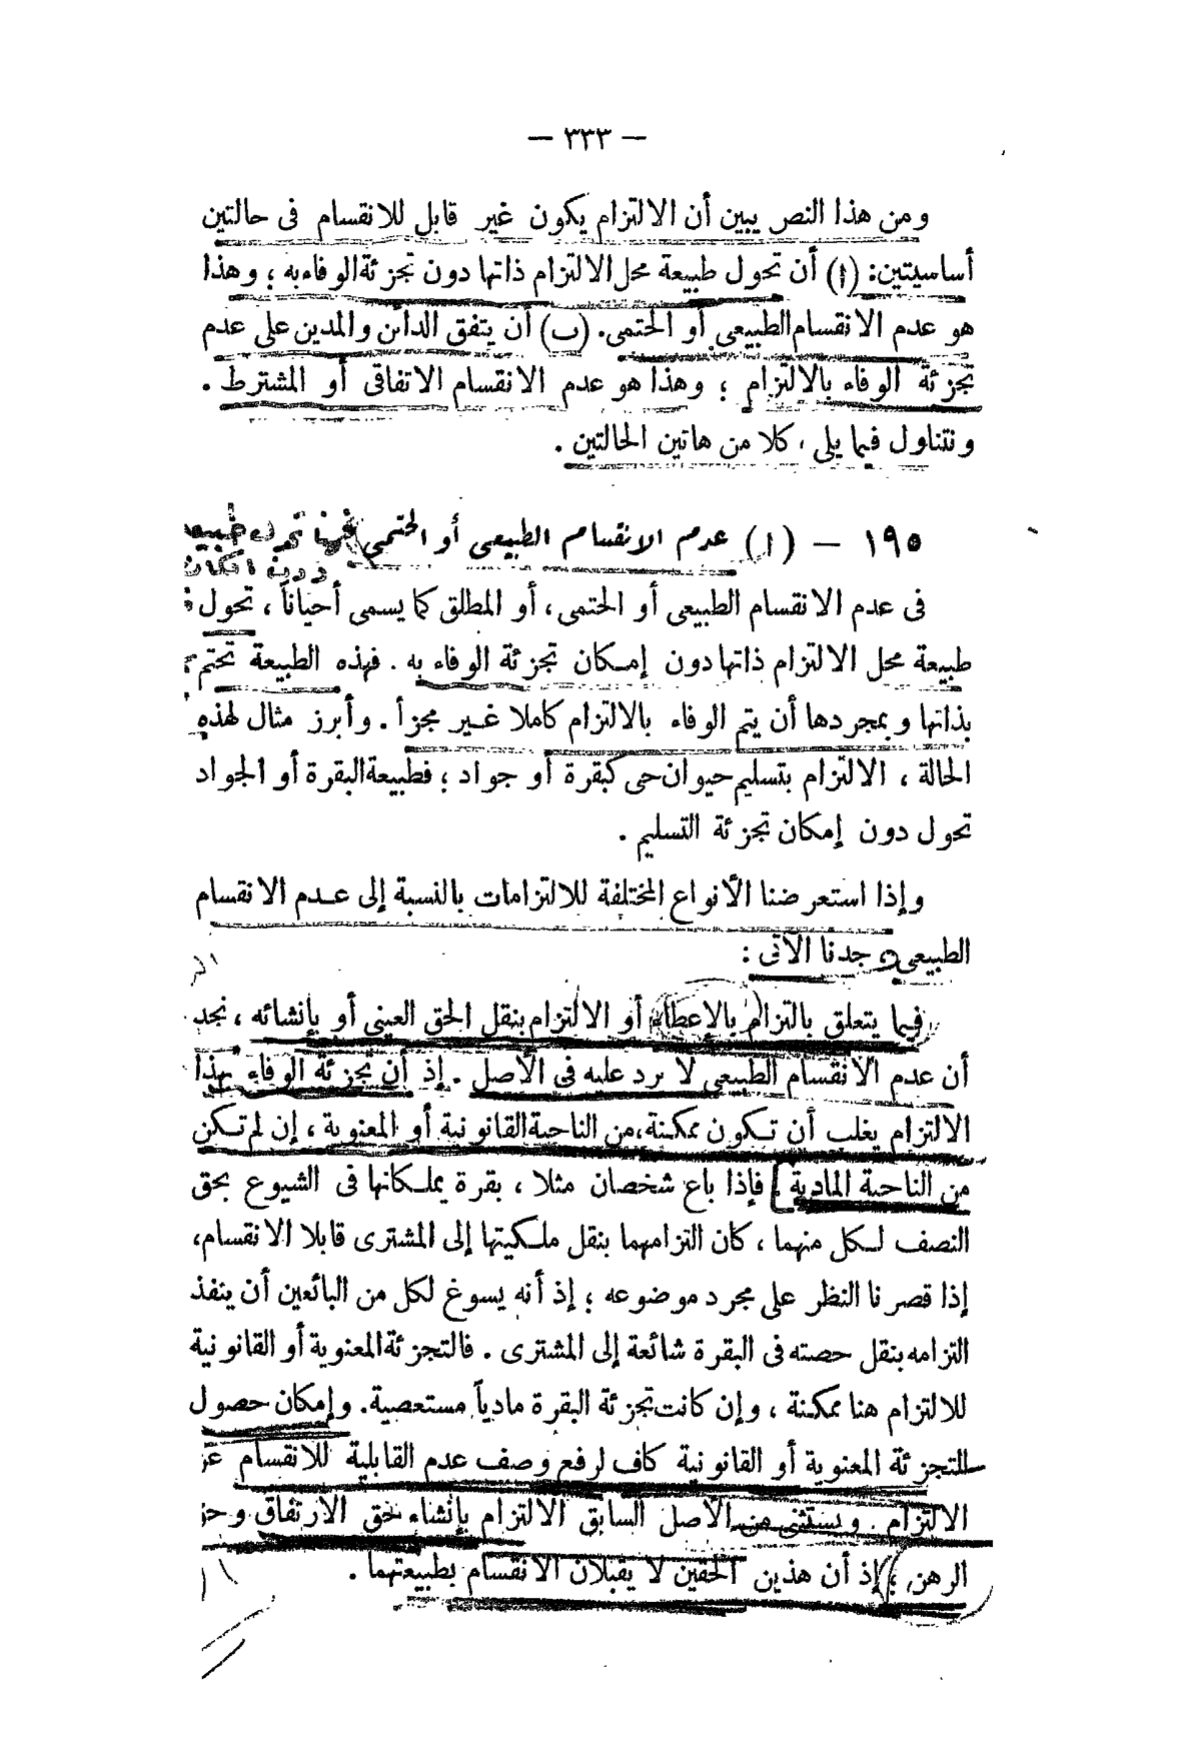 — ٣٣٣ —
ومن هذا النص يبين أن الالتزام يكون غير قابل للانقسام فى حالتين
أساسيتين: (ا) أن تحول طبيعة محل الالتزام ذاتها دون تجزئة الوفاء به ؛ وهذا
هو عدم الانقسام الطبيعى أو الحتمى. (ب) أن يتفق الدائن والمدين على عدم
تجزئة الوفاء بالالتزام ؛ وهذا هو عدم الانقسام الاتفاقى أو المشترط .
ونتناول فيما يلى ، كلا من هاتين الحالتين .
١٩٥ — (ا) عدم الانقسام الطبيعى أو الحتمى
دون امكان
فى عدم الانقسام الطبيعى أو الحتمى ، أو المطلق كما يسمى أحياناً ، تحول
طبيعة محل الالتزام ذاتها دون إمكان تجزئة الوفاء به . فهذه الطبيعة تحتم
بذاتها وبمجردها أن يتم الوفاء بالالتزام كاملا غير مجزأ . وأبرز مثال لهذه
الحالة ، الالتزام بتسليم حيوان حى كبقرة أو جواد ؛ فطبيعة البقرة أو الجواد
تحول دون إمكان تجزئة التسليم .
وإذا استعرضنا الأنواع المختلفة للالتزامات بالنسبة إلى عدم الانقسام
الطبيعى وجدنا الآتى :
فيما يتعلق بالتزام بالإعطاء أو الالتزام بنقل الحق العينى أو بإنشائه ، نجد
أن عدم الانقسام الطبيعى لا يرد عليه فى الأصل . إذ أن تجزئة الوفاء بهذا
الالتزام يغلب أن تكون ممكنة ، من الناحية القانونية أو المعنوية ، إن لم تكن
من الناحية المادية . فإذا باع شخصان مثلا ، بقرة يملكانها فى الشيوع بحق
النصف لكل منهما ، كان التزامهما بنقل ملكيتها إلى المشترى قابلا الانقسام،
إذا قصرنا النظر على مجرد موضوعه ؛ إذ أنه يسوغ لكل من البائعين أن ينفذ
التزامه بنقل حصته فى البقرة شائعة إلى المشترى . فالتجزئة المعنوية أو القانونية
للالتزام هنا ممكنة ، وإن كانت تجزئة البقرة مادياً مستعصية. وإمكان حصول
التجزئة المعنوية أو القانونية كاف لرفع وصف عدم القابلية للانقسام
الالتزام . ويستثنى من الأصل السابق الالتزام بإنشاء حق الارتفاق
الرهن ؛ إذ أن هذين الحقين لا يقبلان الانقسام بطبيعتهما .